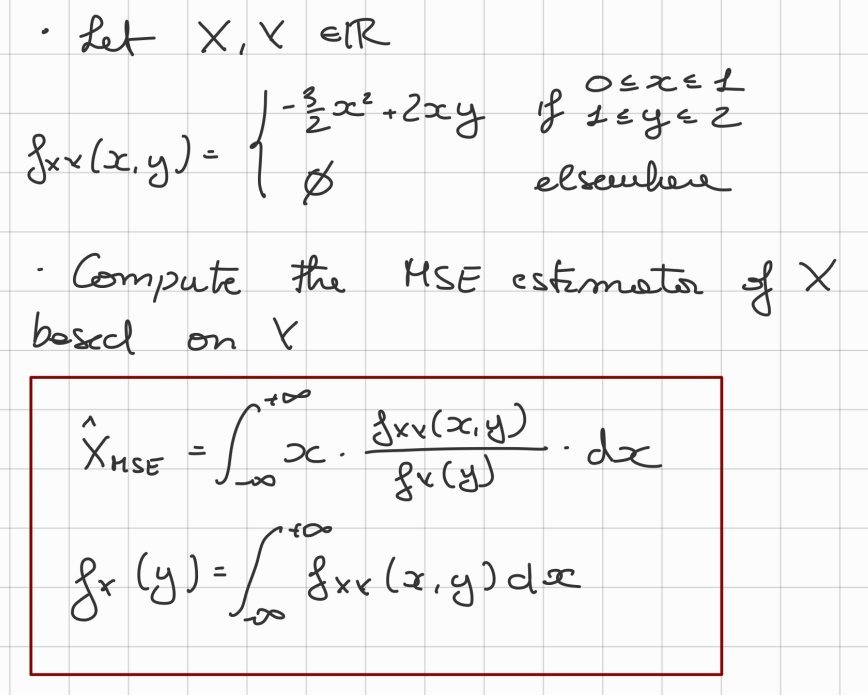 · Let X, Y ∈ ℝ
f_XY(x, y) = { -3/2 x² + 2xy if 0 ≤ x ≤ 1 1 ≤ y ≤ 2
∅ elsewhere
· Compute the MSE estimator of X
based on Y
X̂_MSE = ∫_{-∞}^{+∞} x · f_XY(x, y) / f_Y(y) · dx
f_Y(y) = ∫_{-∞}^{+∞} f_XY(x, y) dx